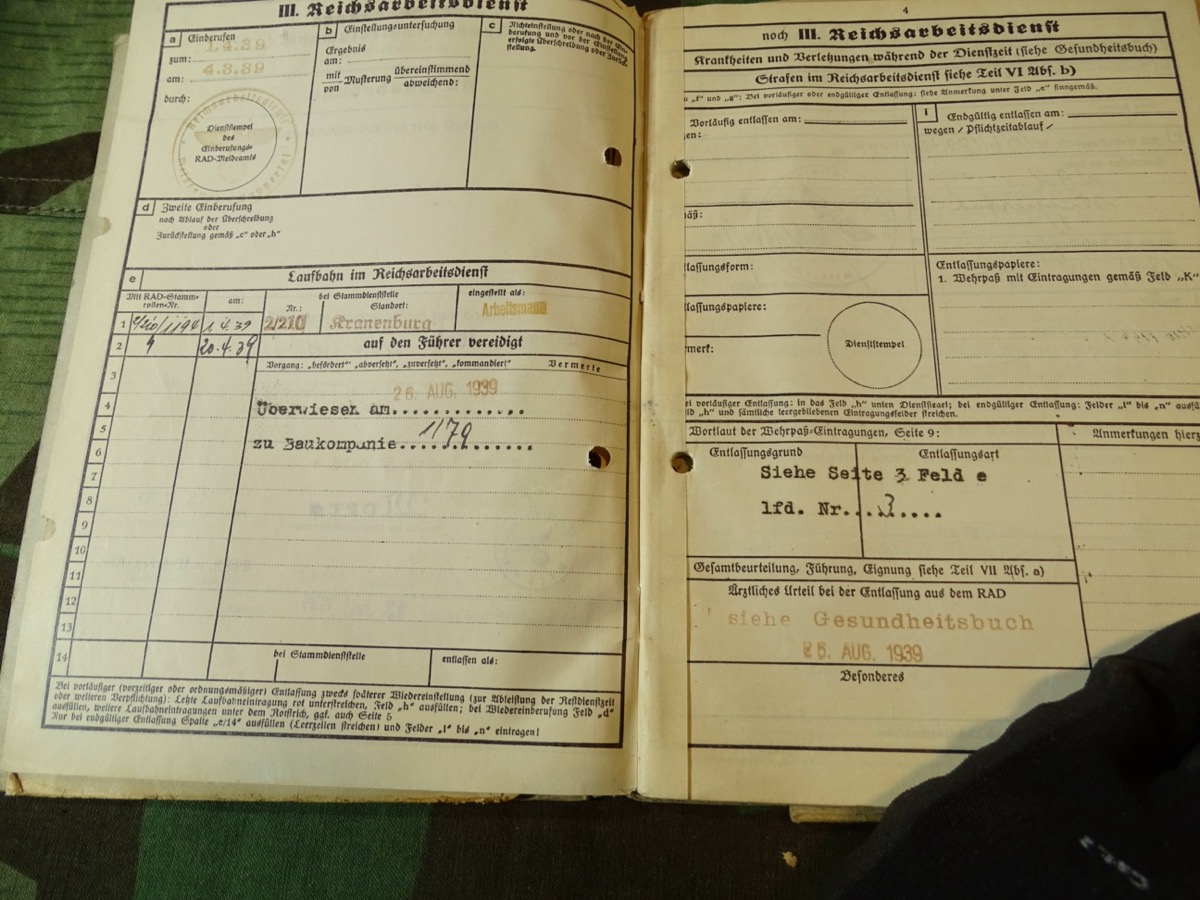 III. Reichsarbeitsdienst
a Einberufen
zum: 1.4.39
am: 4.3.39
durch:
Dienststempel
des
Einberufungs-
RAD-Meldeamts
b Einstellungsuntersuchung
Ergebnis
am:
mit Musterung übereinstimmend
von abweichend:
c Nichteinstellung oder nach der Ein-
berufung und vor der Einstellung
erfolgte Überschreibung oder Zurück-
stellung.
d Zweite Einberufung
nach Ablauf der Überschreibung
oder
Zurückstellung gemäß „c“ oder „h“
e Laufbahn im Reichsarbeitsdienst
Mit RAD-Stamm-
rollen-Nr.
am:
bei Stammdienststelle
Nr.: Standort:
eingestellt als:
1 2/210/1194 1.4.39 2/210 Kranenburg Arbeitsmann
2 20.4.39 auf den Führer vereidigt
Vorgang: „befördert“ „abversetzt“, „zuversetzt“, „kommandiert“ Vermerke
3
26. AUG. 1939
4 Überwiesen am.............
5
zu Baukompanie...1179..........
6
7
8
9
10
11
12
13
14 bei Stammdienststelle entlassen als:
Bei vorläufiger (vorzeitiger oder ordnungsmäßiger) Entlassung zwecks späterer Wiedereinstellung (zur Ableistung der Restdienstzeit
oder weiteren Verpflichtung): Letzte Laufbahneintragung rot unterstreichen, Feld „h“ ausfüllen; bei Wiedereinberufung Feld „d“
ausfüllen, weitere Laufbahneintragungen unter dem Rotstrich, ggf. auch Seite 5
Nur bei endgültiger Entlassung Spalte „e/14“ ausfüllen (Leerzeilen streichen) und Felder „i“ bis „n“ eintragen!
4
noch III. Reichsarbeitsdienst
Krankheiten und Verletzungen während der Dienstzeit (siehe Gesundheitsbuch)
(Strafen im Reichsarbeitsdienst siehe Teil VI Abs. b)
u „f“ und „g“: Bei vorläufiger oder endgültiger Entlassung: siehe Anmerkung unter Feld „e“ sinngemäß.
Vorläufig entlassen am:
gen:
äß:
tlassungsform:
lassungspapiere:
merk:
Dienststempel
i Endgültig entlassen am:
wegen / Pflichtzeitablauf /
Entlassungspapiere:
1. Wehrpaß mit Eintragungen gemäß Feld „K“
ei vorläufiger Entlassung: in das Feld „h“ unten Dienstsiegel; bei endgültiger Entlassung: Felder „i“ bis „n“ ausfü
ld „h“ und sämtliche leergebliebenen Eintragungsfelder streichen.
Wortlaut der Wehrpaß-Eintragungen, Seite 9:
Anmerkungen hierz
Entlassungsgrund Entlassungsart
Siehe Seite 3 Feld e
lfd. Nr....3.....
Gesamtbeurteilung, Führung, Eignung siehe Teil VII Abs. a)
Ärztliches Urteil bei der Entlassung aus dem RAD
siehe Gesundheitsbuch
26. AUG. 1939
Besonderes